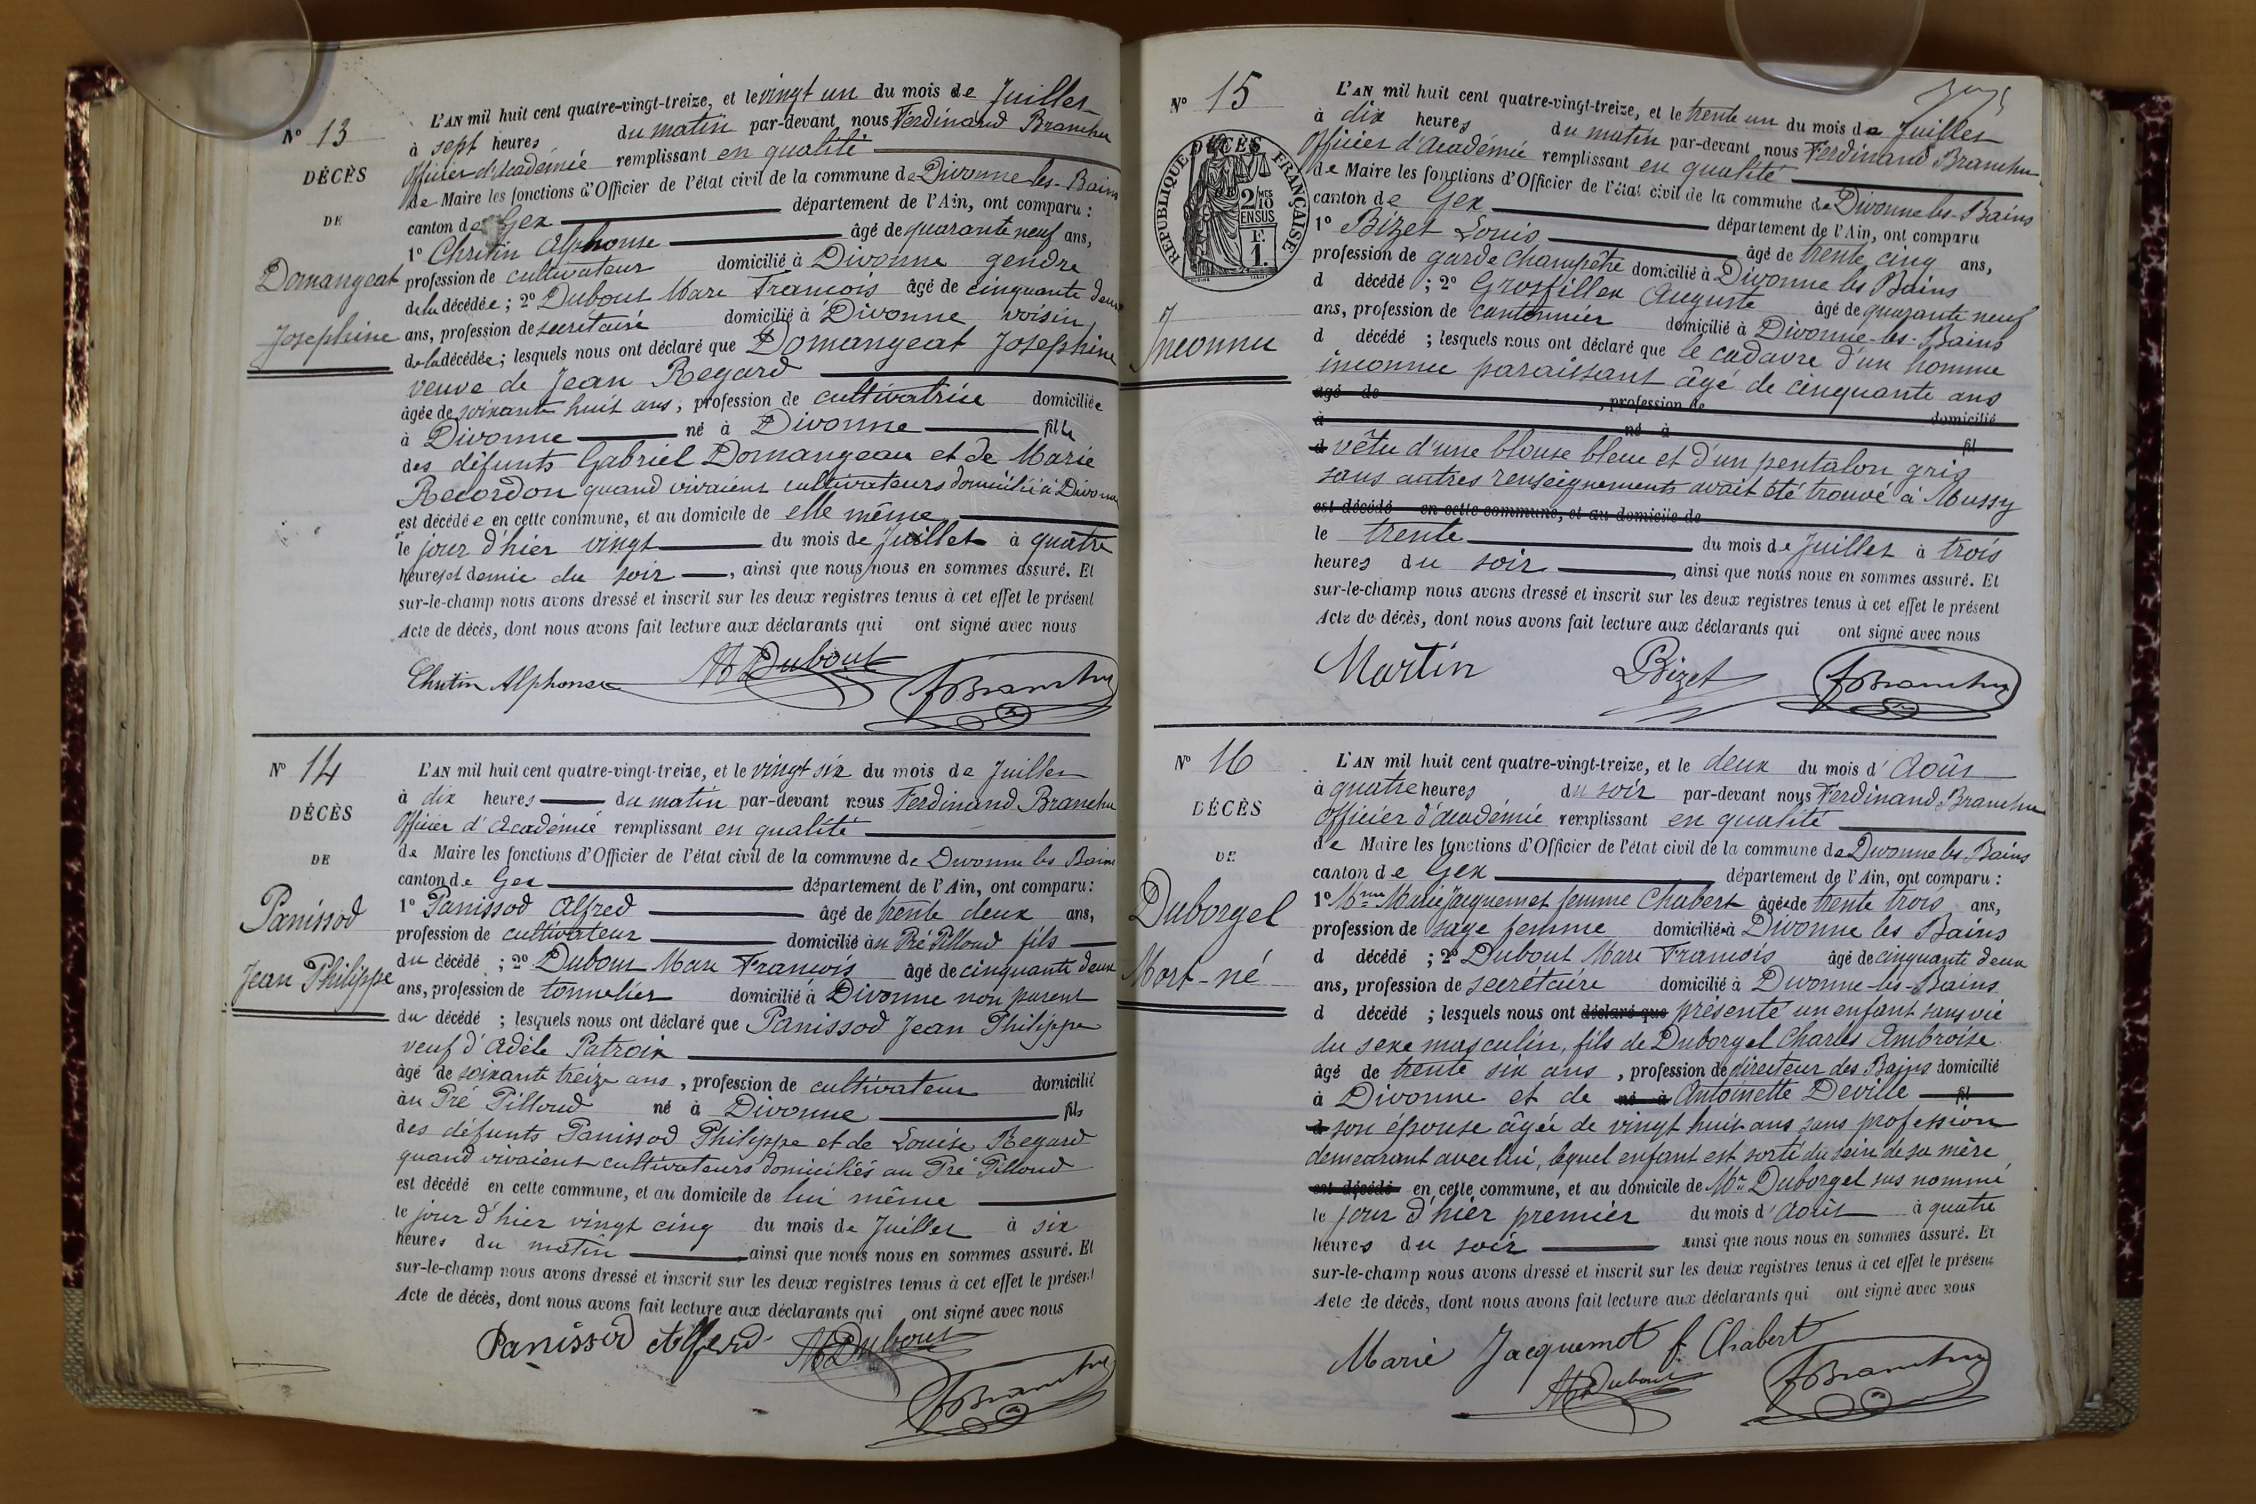 N° 13
DÉCÈS
DE
Domangeat
Josephine
L'AN mil huit cent quatre-vingt-treize, et le vingt un du mois de Juillet
à sept heures du matin par-devant nous Ferdinand Branchu
Officier d'Académie remplissant en qualité
de Maire les fonctions d'Officier de l'état civil de la commune de Divonne-les-Bains
canton de Gex département de l'Ain, ont comparu :
1° Chrétin Alphonse âgé de quarante neuf ans,
profession de cultivateur domicilié à Divonne gendre
de la décédée ; 2° Dubout Marc François âgé de cinquante deux
ans, profession de secrétaire domicilié à Divonne voisin
de la décédée ; lesquels nous ont déclaré que Domangeat Josephine
veuve de Jean Regard
âgée de soixante huit ans, profession de cultivatrice domiciliée
à Divonne né à Divonne fille
des défunts Gabriel Domangeau et de Marie
Recordon quand vivaient cultivateurs domicilié à Divonne
est décédée en cette commune, et au domicile de elle même
le jour d'hier vingt du mois de Juillet à quatre
heures et demie du soir, ainsi que nous nous en sommes assuré. Et
sur-le-champ nous avons dressé et inscrit sur les deux registres tenus à cet effet le présent
Acte de décès, dont nous avons fait lecture aux déclarants qui ont signé avec nous
Chrétin Alphonse M Dubout F Branchu
N° 14
DÉCÈS
DE
Panissod
Jean Philippe
L'AN mil huit cent quatre-vingt-treize, et le vingt six du mois de Juillet
à dix heures du matin par-devant nous Ferdinand Branchu
Officier d'Académie remplissant en qualité
de Maire les fonctions d'Officier de l'état civil de la commune de Divonne les Bains
canton de Gex département de l'Ain, ont comparu :
1° Panissod Alfred âgé de trente deux ans,
profession de cultivateur domicilié au Pré Pilloud fils
du décédé ; 2° Dubout Marc François âgé de cinquante deux
ans, profession de tonnelier domicilié à Divonne non parent
du décédé ; lesquels nous ont déclaré que Panissod Jean Philippe
veuf d'Adèle Patroix
âgé de soixante treize ans, profession de cultivateur domicilié
au Pré Pilloud né à Divonne fils
des défunts Panissod Philippe et de Louise Regard
quand vivaient cultivateurs domiciliés au Pré Pilloud
est décédé en cette commune, et au domicile de lui même
le jour d'hier vingt cinq du mois de Juillet à six
heures du matin ainsi que nous nous en sommes assuré. Et
sur-le-champ nous avons dressé et inscrit sur les deux registres tenus à cet effet le présent
Acte de décès, dont nous avons fait lecture aux déclarants qui ont signé avec nous
Panissod Alfred M Dubout
F Branchu
N° 15
RÉPUBLIQUE FRANÇAISE
DÉCÈS
2 MES 10 EN SUS
F. 1.
Inconnu
L'AN mil huit cent quatre-vingt-treize, et le trente un du mois de Juillet
à dix heures du matin par-devant nous Ferdinand Branchu
Officier d'Académie remplissant en qualité
de Maire les fonctions d'Officier de l'état civil de la commune de Divonne les-Bains
canton de Gex département de l'Ain, ont comparu
1° Bizet Louis âgé de trente cinq ans,
profession de garde champêtre domicilié à Divonne les Bains
d décédé ; 2° Grosfillex Auguste âgé de quarante neuf
ans, profession de cantonnier domicilié à Divonne-les-Bains
d décédé ; lesquels nous ont déclaré que le cadavre d'un homme
inconnu paraissant âgé de cinquante ans
agé de , profession de domicilié
à né à fil
d vêtu d'une blouse bleue et d'un pentalon gris
sans autres renseignements avait été trouvé à Mussy
est décédé en cette commune, et au domicile de
le trente du mois de Juillet à trois
heures du soir, ainsi que nous nous en sommes assuré. Et
sur-le-champ nous avons dressé et inscrit sur les deux registres tenus à cet effet le présent
Acte de décès, dont nous avons fait lecture aux déclarants qui ont signé avec nous
Martin Bizet F Branchu
N° 16
DÉCÈS
DE
Duborgel
Mort-né
L'AN mil huit cent quatre-vingt-treize, et le deux du mois d'Août
à quatre heures du soir par-devant nous Ferdinand Branchu
Officier d'académie remplissant en qualité
de Maire les fonctions d'Officier de l'état civil de la commune de Divonne les Bains
canton de Gex département de l'Ain, ont comparu :
1° Mme Marie Jacquemet femme Chabert âgée de trente trois ans,
profession de sage femme domiciliée à Divonne les Bains
d décédé ; 2° Dubout Marc François âgé de cinquante deux
ans, profession de secrétaire domicilié à Divonne-les-Bains
d décédé ; lesquels nous ont déclaré que présenté un enfant sans vie
du sexe masculin, fils de Duborgel Charles Ambroise
âgé de trente six ans, profession de directeur des Bains domicilié
à Divonne et de né à Antoinette Deville fil
d son épouse âgée de vingt huit ans sans profession
demeurant avec lui, lequel enfant est sorti du sein de sa mère
est décédé en cette commune, et au domicile de Mr Duborgel sus nommé
le jour d'hier premier du mois d'Août à quatre
heures du soir ainsi que nous nous en sommes assuré. Et
sur-le-champ nous avons dressé et inscrit sur les deux registres tenus à cet effet le présent
Acte de décès, dont nous avons fait lecture aux déclarants qui ont signé avec nous
Marie Jacquemet f Chabert
M Dubout F Branchu